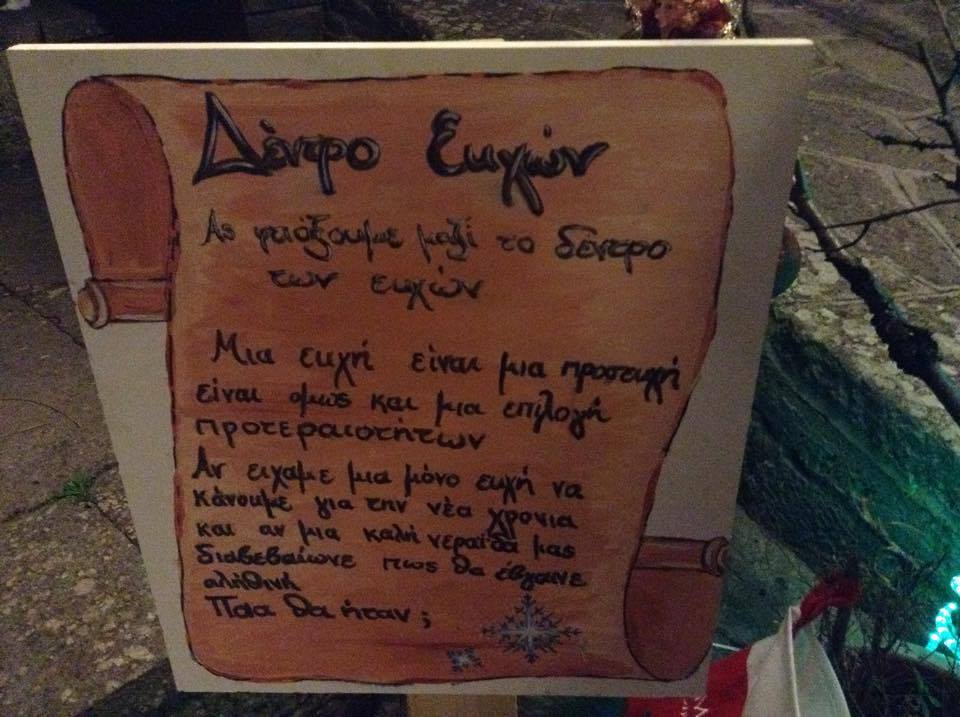 Δέντρο Ευχών
Ας φτιάξουμε μαζί το δέντρο
των ευχών
Μια ευχή είναι μια προσευχή
είναι ομως και μια επιλογή
προτεραιοτήτων
Αν ειχαμε μια μόνο ευχή να
κάνουμε για την νέα χρονια
και αν μια καλή νεραΐδα μας
διαβεβαίωνε πως θα έβγαινε
αλήθινή
Ποια θα ήταν;